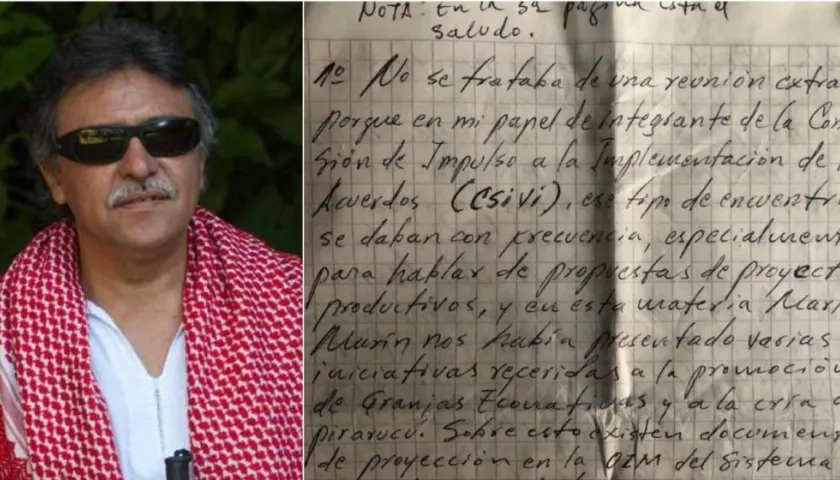 NOTA: En la 5a página está el
saludo.
1º No se trataba de una reunión extra
porque en mi papel de integrante de la Com
sión de Impulso a la Implementación de
Acuerdos (CSIVI), ese tipo de encuentr
se daban con frecuencia, especialmen
para hablar de propuestas de proyect
productivos, y en esta materia Mari
Marín nos había presentado varias
iniciativas referidas a la promoción
de Granjas Econativas y a la cría
pirarucú. Sobre esto existen documen
de proyección en la OIM del Sistema